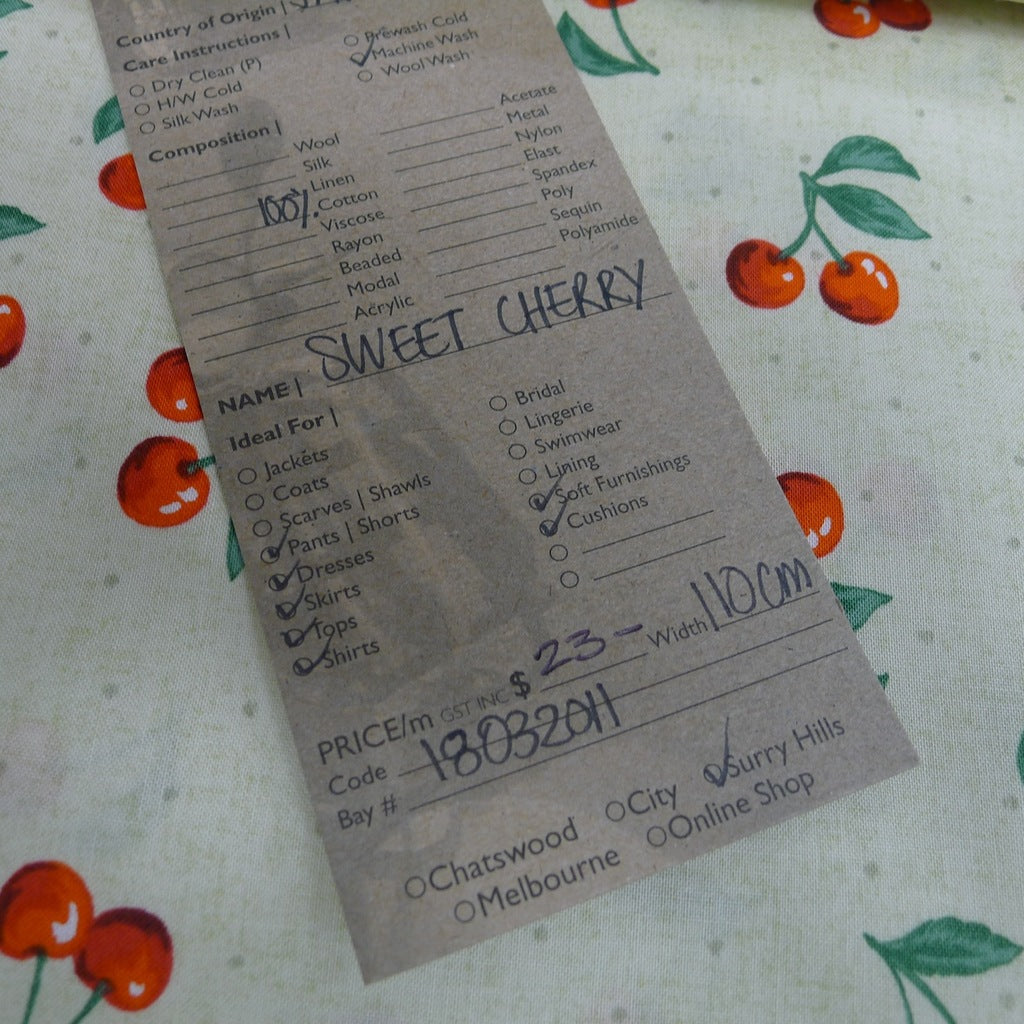 Country of Origin |
Care Instructions |
Dry Clean (P)
H/W Cold
Silk Wash
Prewash Cold
Machine Wash
Wool Wash
Composition |
Wool
Silk
Linen
100% Cotton
Viscose
Rayon
Beaded
Modal
Acrylic
Acetate
Metal
Nylon
Elast
Spandex
Poly
Sequin
Polyamide
NAME | SWEET CHERRY
Ideal For |
Jackets
Coats
Scarves | Shawls
Pants | Shorts
Dresses
Skirts
Tops
Shirts
Bridal
Lingerie
Swimwear
Lining
Soft Furnishings
Cushions
PRICE/m GST INC $ 23- Width 110cm
Code 18032011
Bay #
Chatswood City Surry Hills
Melbourne Online Shop